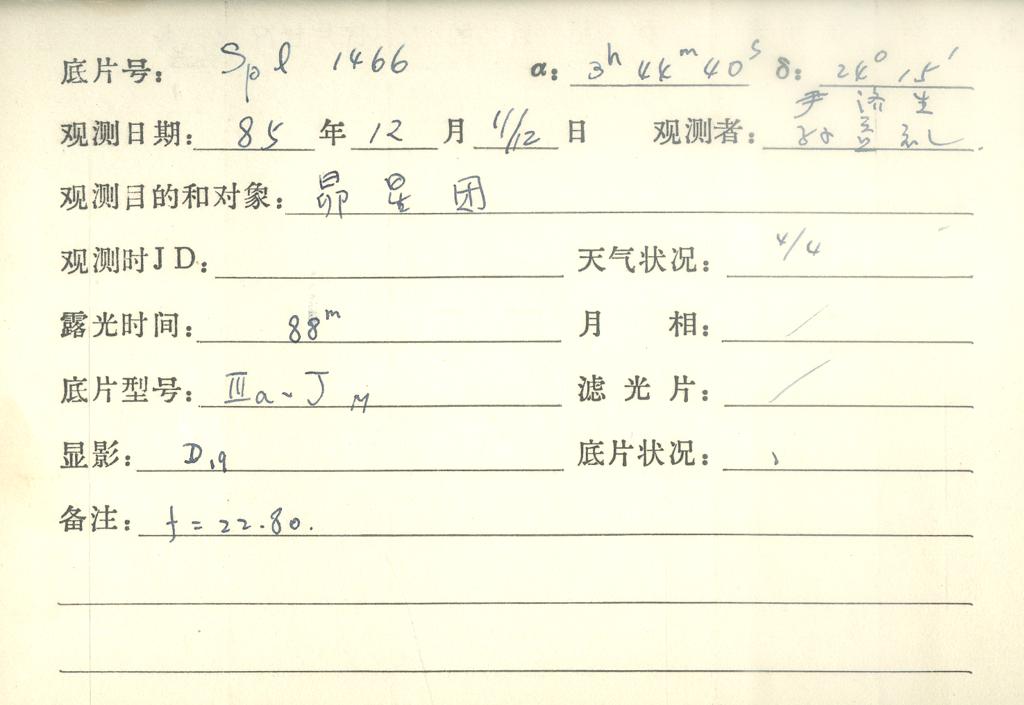 底片号: Spl 1466 α: 3h 44m 40s δ: 24° 15′
尹 济 生
观测日期: 85 年 12 月 11/12 日 观测者: 孙 益 礼
观测目的和对象: 昴 星 团
观测时JD: 天气状况: 4/4
露光时间: 88m 月 相: /
底片型号: IIIa-J M 滤 光 片: /
显影: D19 底片状况: 、
备注: f = 22.80.